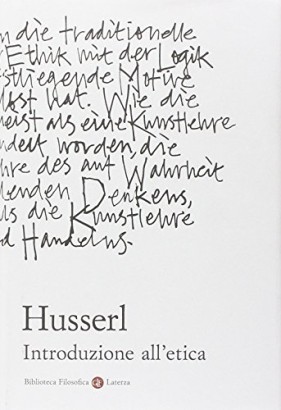 n die traditionelle
Ethik mit der Logik
stliegende Motive
löst hat. Wie die
meist als eine Kunstlehre
ndelt worden, die
hre des auf Wahrheit
lenden Denkens,
ls die Kunstlehre
d Handelns.
Husserl
Introduzione all'etica
Biblioteca Filosofica Laterza